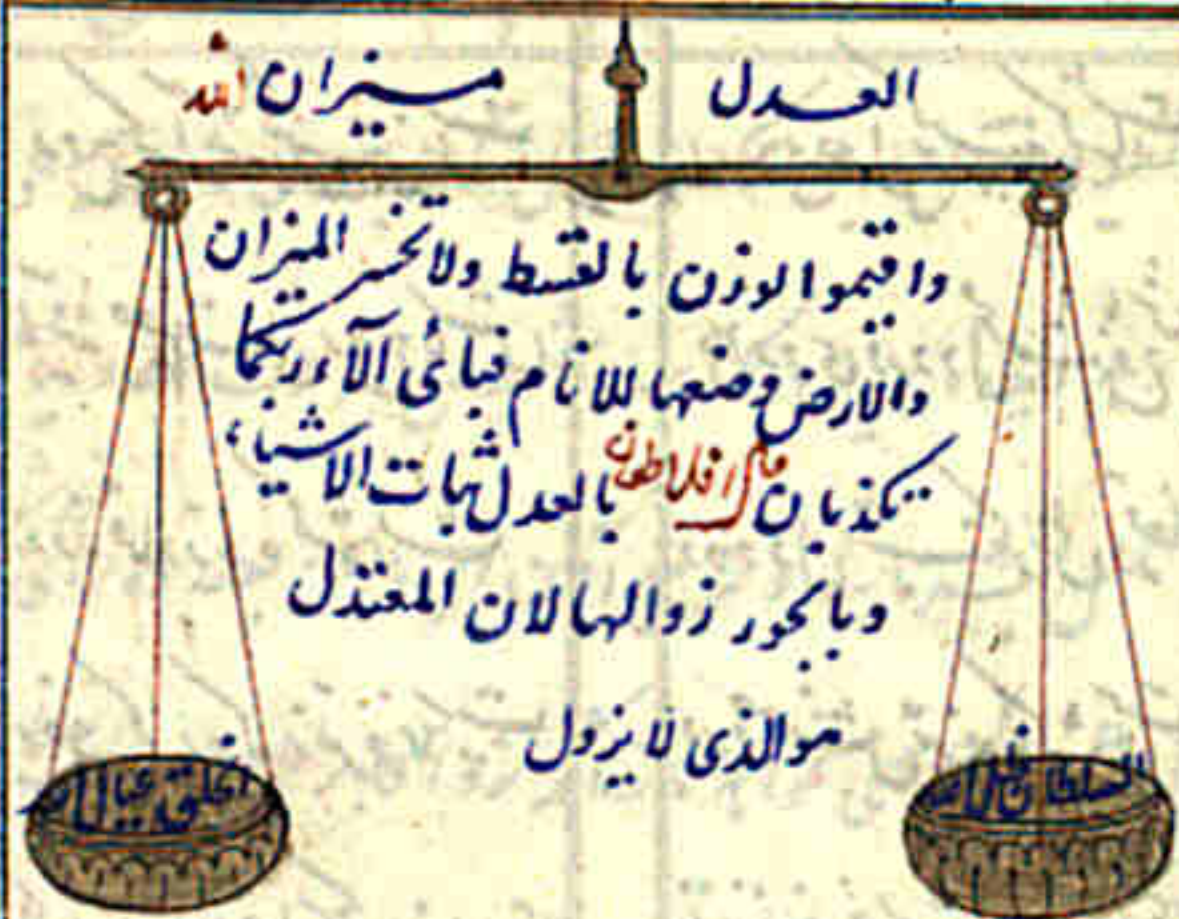 العدل ميزان الله
واقيموا لوزن بالقسط ولاتخسر الميزان
والارض وضعها للانام فبائ آلاء ربكما
تكذبان قال افلاطون بالعدل ثبات الاشياء
وبالجور زوالها لان المعتدل
هوالذى لا يزول
السلطان ظل الله
الخلق عيال الله